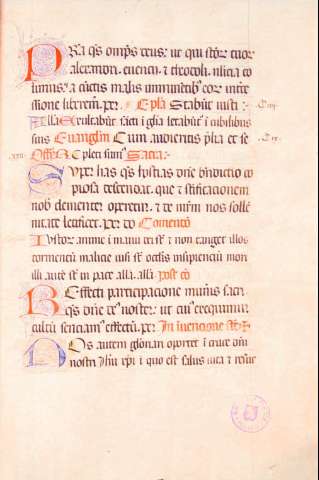 PRa qs omps deus: ut qui scor tuor
alexandri. euencii. & theodoli. nlicia co
limus: a cunctis malis imminentib; eor inter
cessione liberem. per. Epla Stabut iusti : Cxvi
Alla Exultabut sci i glia letabut i cubilibus
suis Euanglin Cum audieritis plia et se Cix.
Offer Repleti sum Sacra:
SUper has qs hostias dne bndictio co
piosa descendat. que & scificationem
nob clementer operetur. & de mrm nos solle
nitate letificet. per do Comento
Iustor anime i manu dei st & non tanget illos
tormentu malicie uisi st oclis insipientiu mori
illi aute st in pace alla. alla Post co
REffecti participacione munis sacri
qs dne ds noster: ut cui exequimur
cultu senciam effectu. per. In inuencione
NOs autem gloriari oportet i cruce dni
nostri Ihu xpi i quo est salus uita & resur